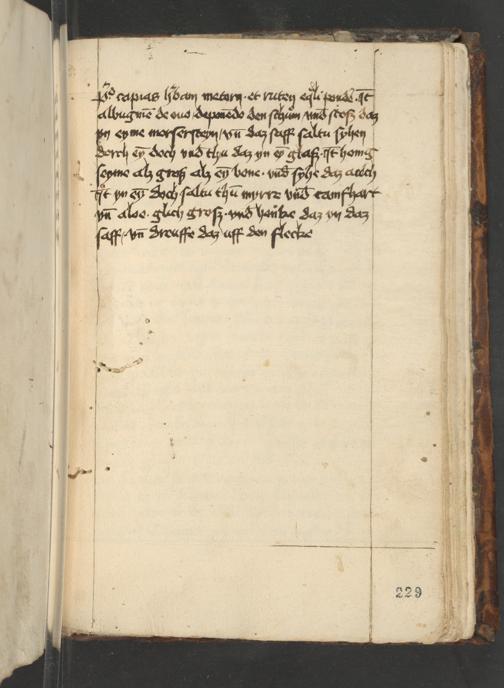 capias h̄bam metern · et ruten eq̄li pondē · it̄
albuginē de ouo · deponēdo den schūm vnd stoß daz
yn eyme morserstein / vn̄ daz saff saltu syhen
dorch eȳ doch vnd thu daz yn eȳ glaß · it̄ honig
seyme alz groß alz eȳ bone · vnd syhe daz auch
yn eȳ doch saltu thū myrre vnd camfhart
vn̄ aloe · glich groß · vnd daz yn daz
saff / vn̄ dreuffe daz uff den flecke
229